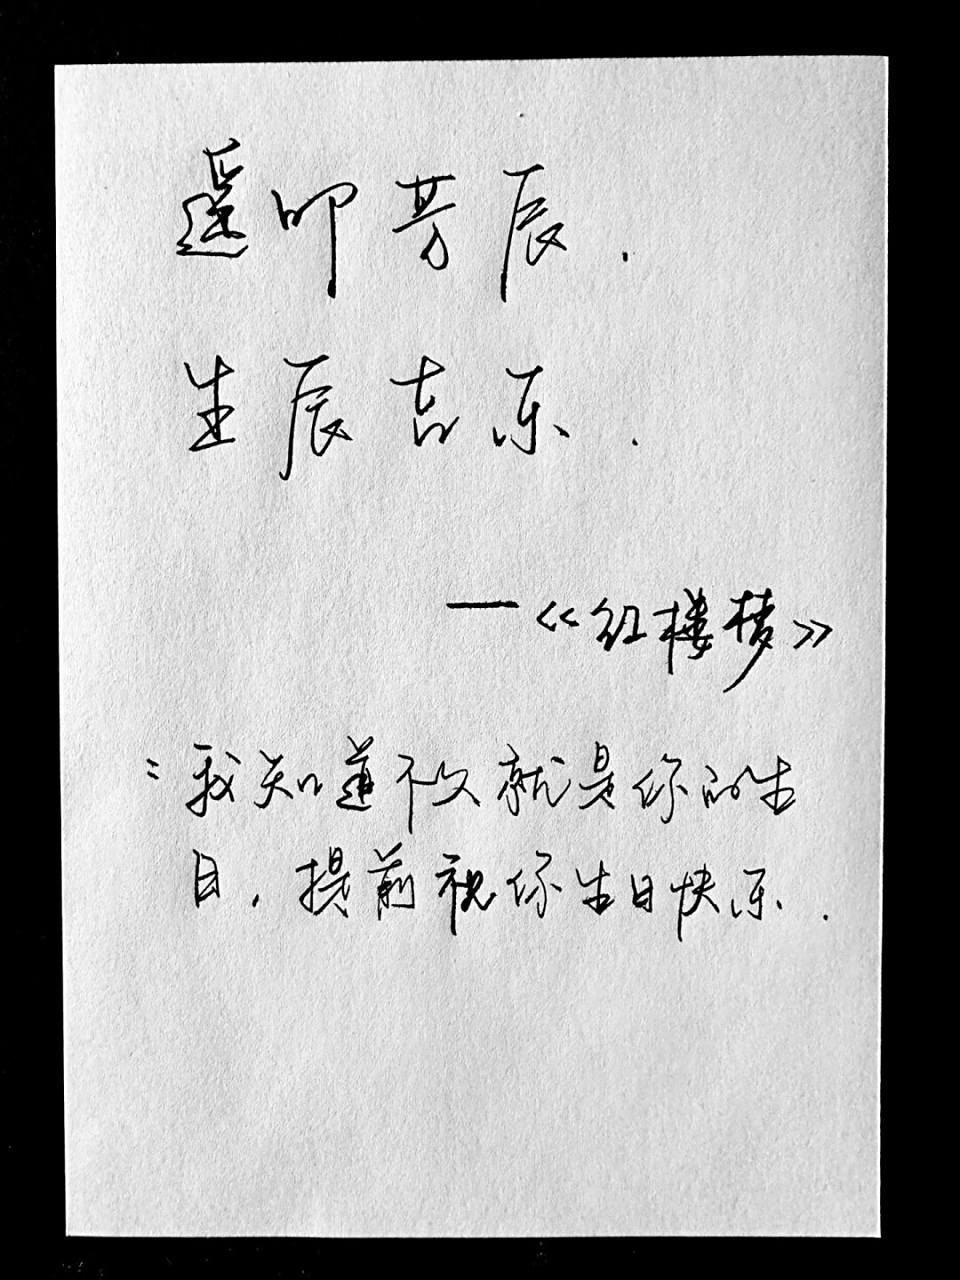 遥叩芳辰.
生辰吉乐.
—《红楼梦》
: 我知道不久就是你的生
日.提前祝你生日快乐.